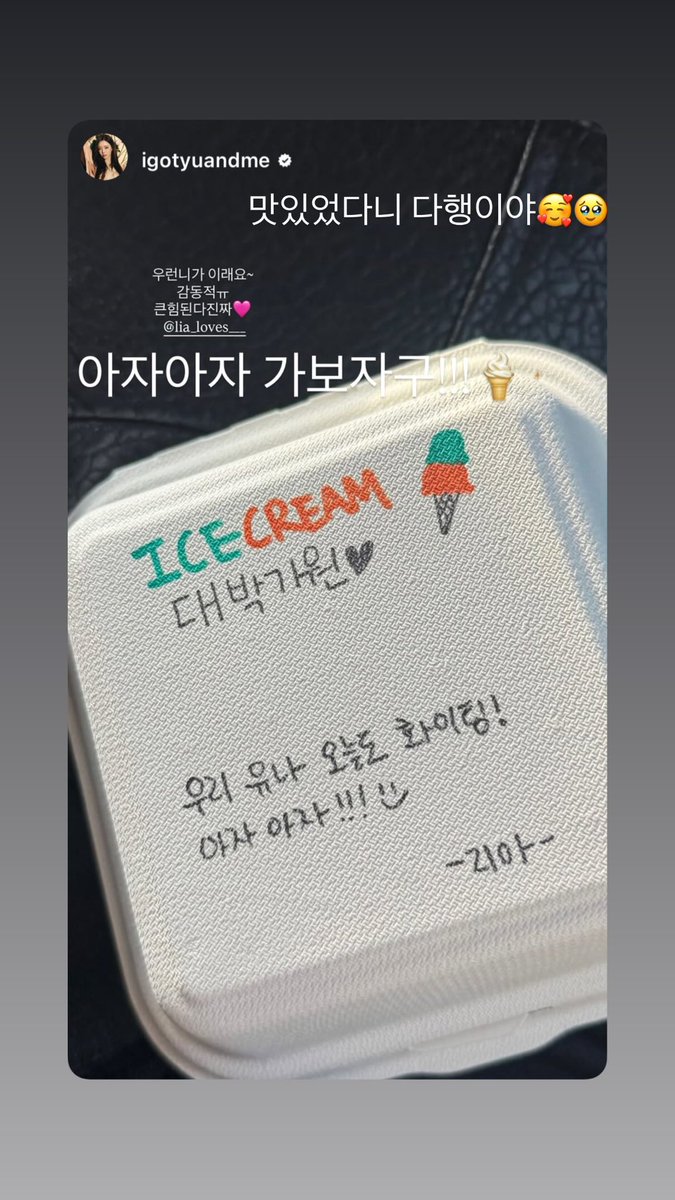 igotyuandme
맛있었다니 다행이야🥰🥹
우런니가 이래요~
감동적ㅠ
큰힘된다진짜🩷
@lia_loves__
아자아자 가보자구!!!🍦
ICECREAM
대박가원♥
우리 유나 오늘도 화이팅!
아자 아자!!!
-리아-